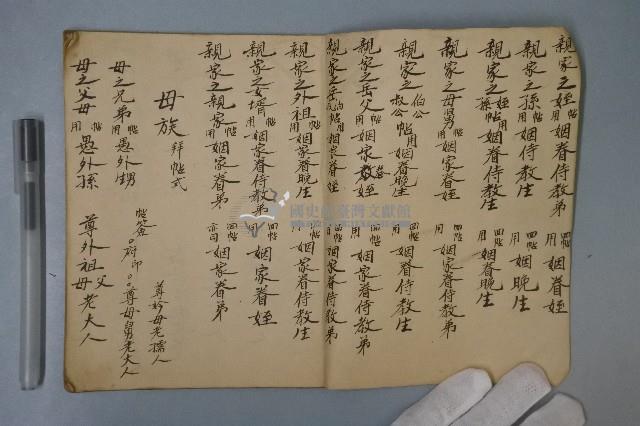 親家之姪帖用姻眷侍教弟 回帖用姻眷姪
親家之孫帖用姻侍教生 回帖用姻晚生
親家之姪孫帖用姻眷侍教生 回帖用姻眷晚生
親家之母舅帖用姻家眷姪 回帖用姻家眷侍教弟
親家之伯公叔公帖用姻眷晚生 回帖用姻眷侍教生
親家之岳父帖用姻家眷教姪 回帖用姻家眷侍教弟
親家之岳 姻家眷姪 回帖用姻家眷侍教弟
親家之外祖帖用姻家眷晚生 回帖用姻家眷侍教生
親家之女壻帖用姻家眷侍教弟 回帖用姻家眷姪
親家之親家帖用姻家眷弟 回帖亦同姻家眷弟
母族拜帖式 尊妗母老孺人
母之兄弟帖用愚外甥 帖簽 府印 尊母舅老大人
母之父母帖用愚外孫 尊外祖父母老大人
國史館臺灣文獻館